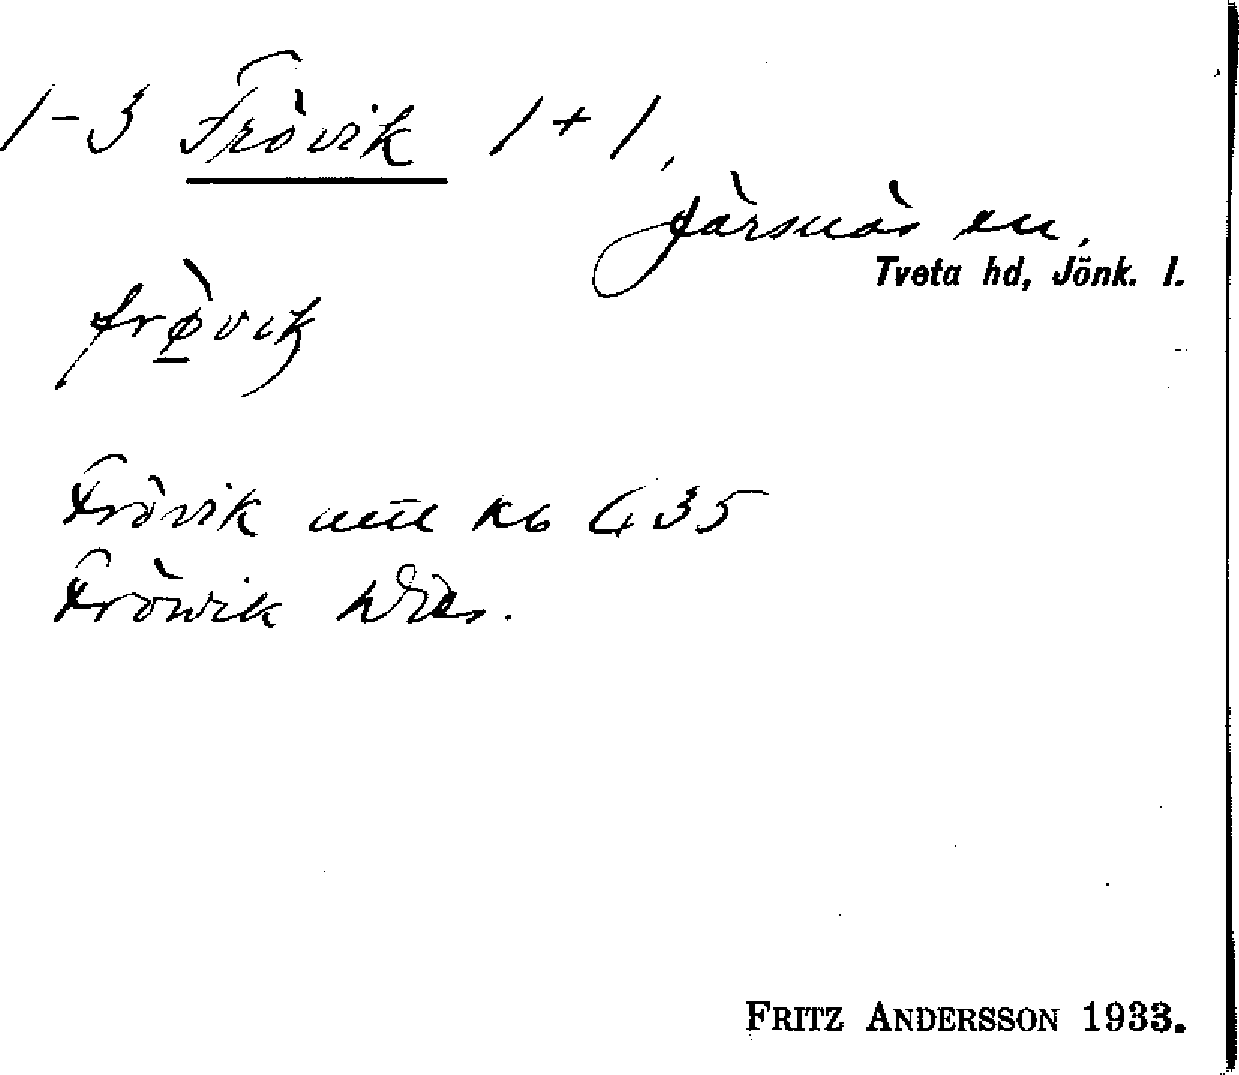 1-3 Frövik 1+1,
Järsnäs sn,
Tveta hd, Jönk. l.
frø̀vik
Frövik utg Kb G 35
Fröwik
FRITZ ANDERSSON 1933.